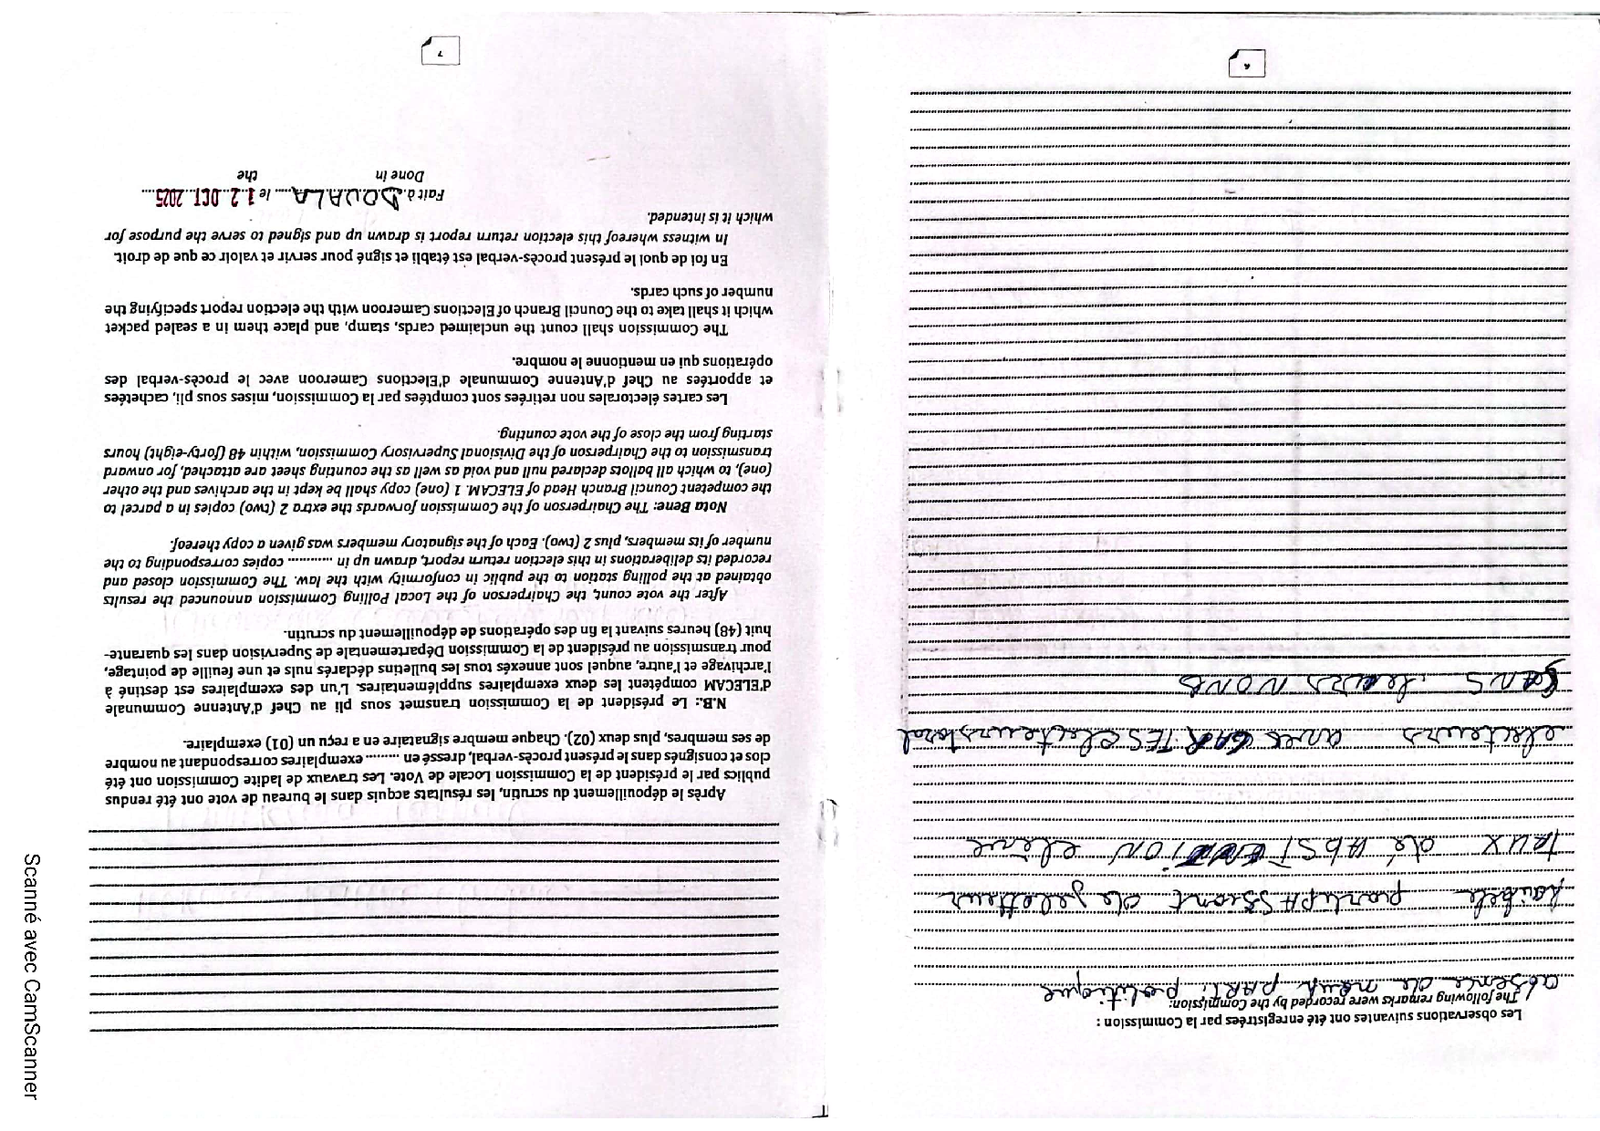 Les observations suivantes ont été enregistrées par la Commission :
The following remarks were recorded by the Commission:
absence de neuf PARTi politique
faibele partipASSiont de
TAUX dé AbSTENTiON eléve
electeurs avec CARTES electeurstoral
SANS leurs NONS
6
Après le dépouillement du scrutin, les résultats acquis dans le bureau de vote ont été rendus
publics par le président de la Commission Locale de Vote. Les travaux de ladite Commission ont été
clos et consignés dans le présent procès-verbal, dressé en ......... exemplaires correspondant au nombre
de ses membres, plus deux (02). Chaque membre signataire en a reçu un (01) exemplaire.
N.B.: Le président de la Commission transmet sous pli au Chef d'Antenne Communale
d'ELECAM compétent les deux exemplaires supplémentaires. L'un des exemplaires est destiné à
l'archivage et l'autre, auquel sont annexés tous les bulletins déclarés nuls et une feuille de pointage,
pour transmission au président de la Commission Départementale de Supervision dans les quarante-
huit (48) heures suivant la fin des opérations de dépouillement du scrutin.
After the vote count, the Chairperson of the Local Polling Commission announced the results
obtained at the polling station to the public in conformity with the law. The Commission closed and
recorded its deliberations in this election return report, drawn up in ............ copies corresponding to the
number of its members, plus 2 (two). Each of the signatory members was given a copy thereof.
Nota Bene: The Chairperson of the Commission forwards the extra 2 (two) copies in a parcel to
the competent Council Branch Head of ELECAM. 1 (one) copy shall be kept in the archives and the other
(one), to which all ballots declared null and void as well as the counting sheet are attached, for onward
transmission to the Chairperson of the Divisional Supervisory Commission, within 48 (forty-eight) hours
starting from the close of the vote counting.
Les cartes électorales non retirées sont comptées par la Commission, mises sous pli, cachetées
et apportées au Chef d'Antenne Communale d'Elections Cameroon avec le procès-verbal des
opérations qui en mentionne le nombre.
The Commission shall count the unclaimed cards, stamp, and place them in a sealed packet
which it shall take to the Council Branch of Elections Cameroon with the election report specifying the
number of such cards.
En foi de quoi le présent procès-verbal est établi et signé pour servir et valoir ce que de droit.
In witness whereof this election return report is drawn up and signed to serve the purpose for
which it is intended.
Fait à DOUALA le 12 OCT 2025
Done in the
7
Scanné avec CamScanner